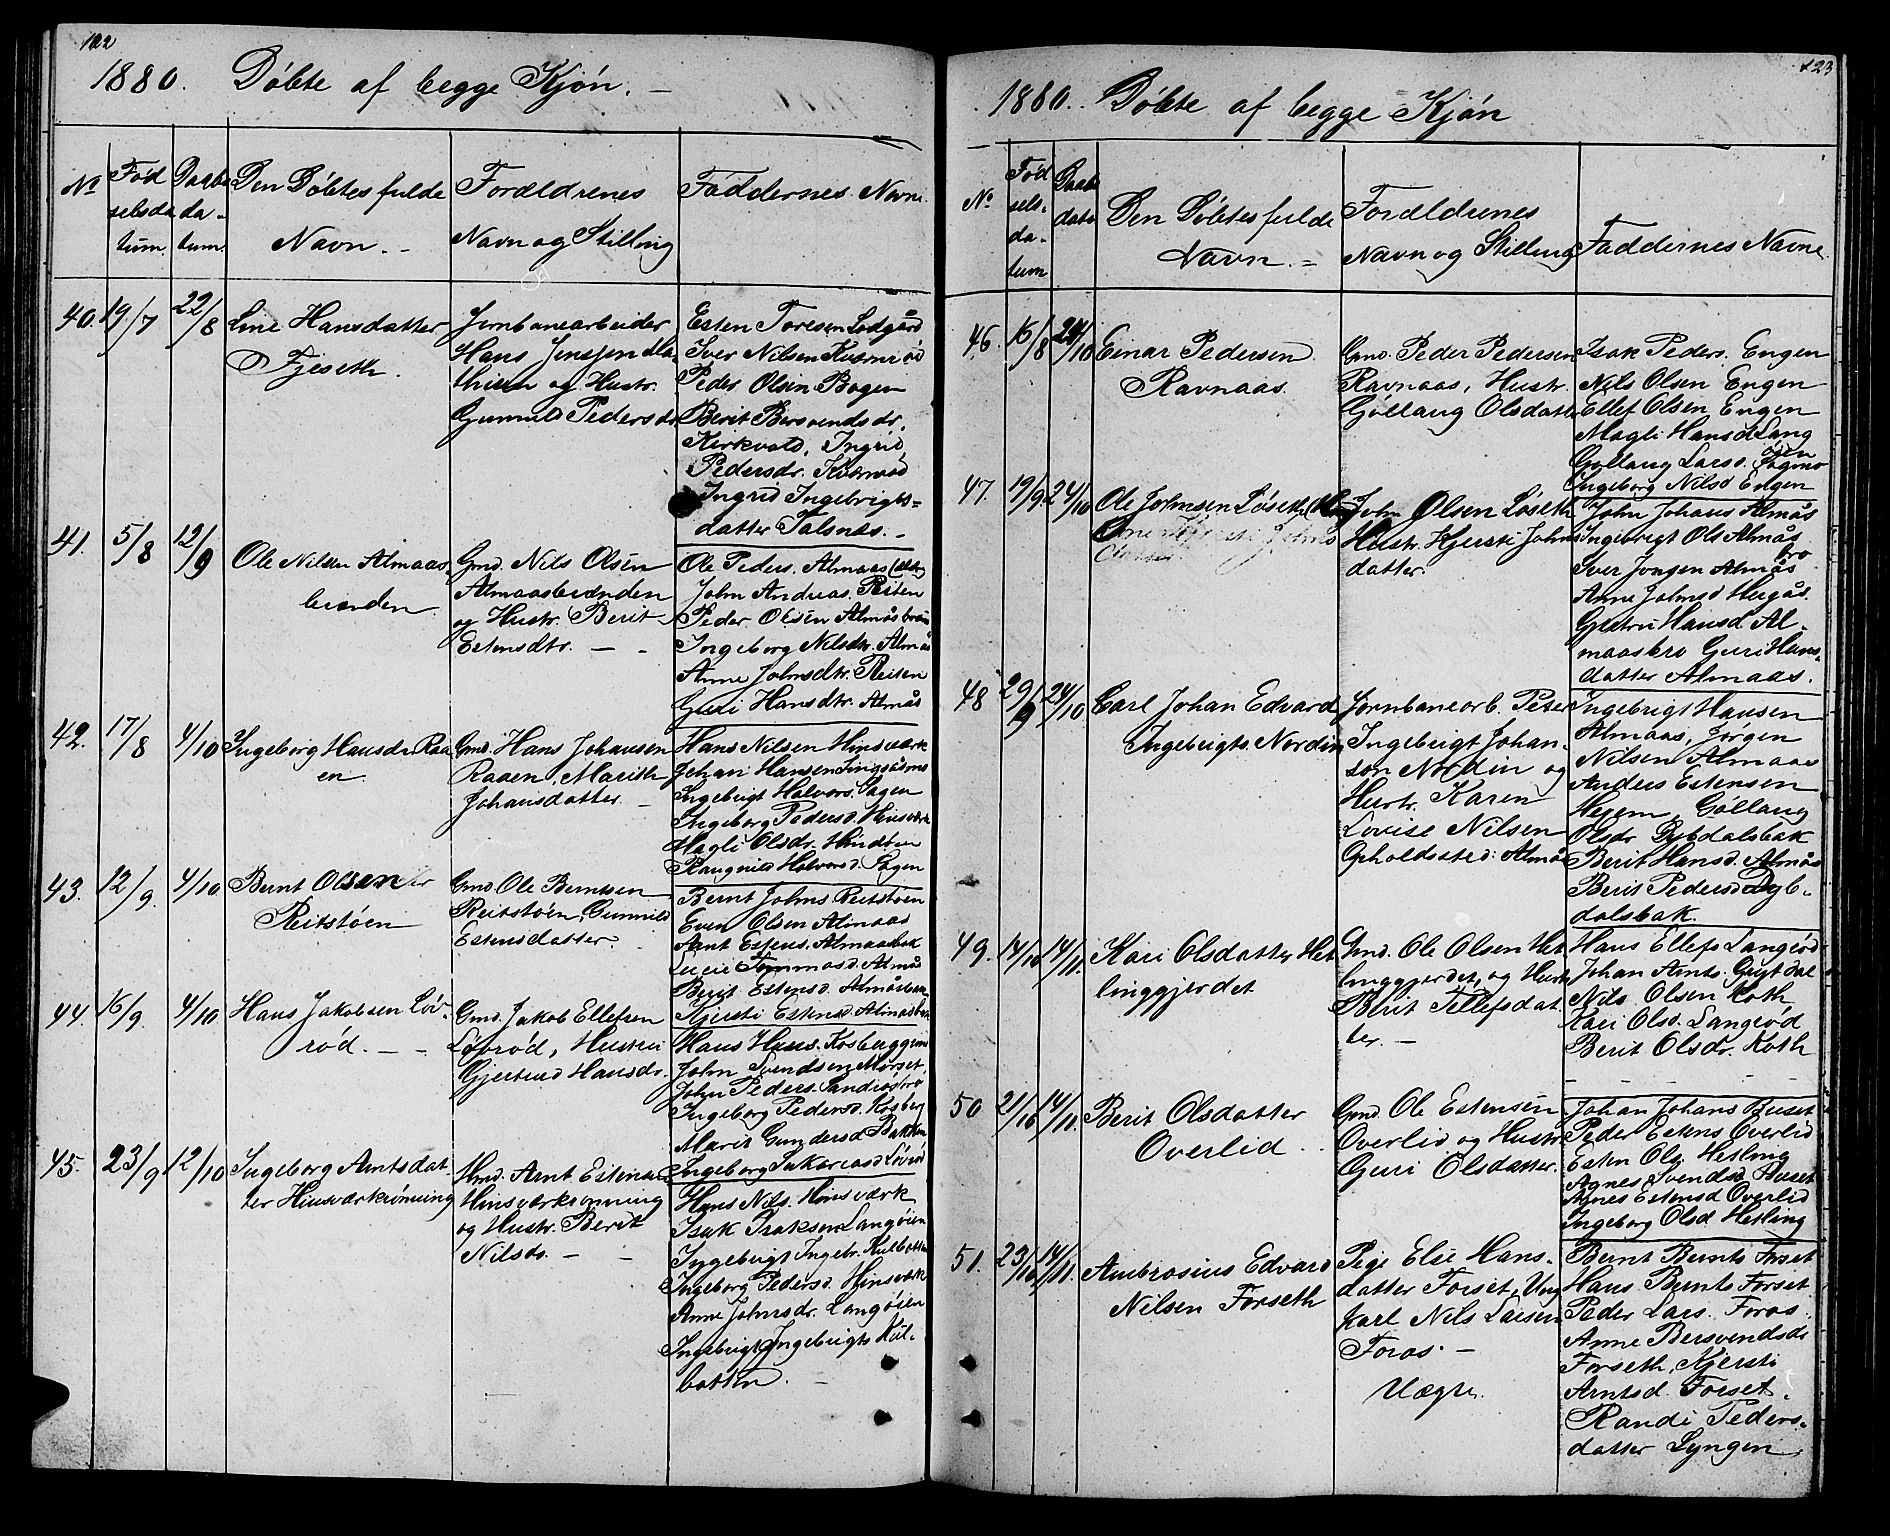 122
1880. Döbte af begge Kjön. —
No
Föd
selsda
tum.
Daabs
da-
tum.
Den Döbtes fulde
Navn. —
Forældrenes
Navn og Stilling
Faddernes Navne.
40. 19/7 22/8
Line Hansdatter
Fjeseth.
Jernbanearbeider
Hans Jenssen Ma-
thisen og Hustr.
Gunnild Pedersdr
Esten Toresen Lodgård
Iver Nilsen Kværnød
Peder Olsen Bogen
Berit Bersvendsdr.
Kirkvold, Ingrid
Pedersdr. Kværnød
Ingrid Ingebrigts=
datter Talsnæs. —
41. 5/8 12/9
Ole Nilsen Almaas
brænden
Gmd. Nils Olsen
Almaasbrænden
og Hustr. Berit
Estensdtr. — -
Ole Peders. Almaas (eldre)
John Andreas. Reiten
Peder Olsen Almåsbræn
Ingeborg Nilsdtr. Almås
Anne Johnsdtr. Reiten
Guri Hansdtr. Almås
42. 17/8 4/10
Ingeborg Hansdr Raa
en
Gmd. Hans Johansen
Raaen, Marith
Johansdatter. —
Hans Nilsen Hinsværk
Johan Hansen Lingåsmo
Ingebrigt Halvors. Hagen
Ingeborg Pedersd. Hinsværk
Magli Olsdr. Hindöen
Raugnild Halvorsd. Hagen
43. 12/9. 4/10
Bernt Olsen
Reitstöen
Gmd. Ole Berntsen
Reitstöen, Gunnild
Estensdatter
Bernt Johns Reitstöen
Even Olsen Almaas
Arnt Estens. Almaasbak
Lucie Tommasd. Almås
Berit Estensd. Almåsbræn
Kjersti Estensd. Almåsbak
44. 16/9. 4/10
Hans Jakobsen Löv-
röd. — —
Gmd. Jakob Ellefsen
Lövröd, Hustru
Gjertrud Hansdr.
Hans Hans. Kosberggrind
John Svendsen Morset
John Peders. Sandrösbro
Ingeborg Pedersd. Kosberg
Marit Gundersd Bakken
Ingeborg Sakariasd Lövröd
45. 23/9 12/10
Ingeborg Arntsdat-
ter Hinsværkrönning
Hmd. Arnt Estensen
Hinsværkrönning
og Hustr. Berit
Nilsdr. — -
Hans Nils. Hinsværk
Isak Isaksen Langöien
Ingebrigt Ingebr. Kulbotten
Ingeborg Pedersd. Hinsværk
Anne Johnsdr. Langöien
Ingebrigt Ingebrigts Kul-
botten. —
123
1880. Döbte af begge Kjön
No
Föd
sels-
da-
tum
Daabs
datu
Den Döbtes fulde
Navn. =
Forældrenes
Navn og Stilling
Faddernes Navne
46. 16/8 24/10
Einar Pedersen
Ravnaas.
Gmd. Peder Pedersen
Ravnaas, Hustr.
Göllaug Olsdatter
Isak Peders. Engen
Nils Olsen Engen
Ellef Olsen Engen
Magli Hansd Lang
öien
Göllaug Larsd. Sagmo
Ingeborg Nilsd Engen
47. 19/9. 24/10
Ole Johnsen Löseth
John Olsen Löseth
Hustr. Kjersti Johns
datter.
John Johans Almås
Ingebrigt Ols Almås
bro
Iver Jongen Almås
Anne Johnsd Hugås.
Gjertru Hansd Al-
maasbro Guri Hans-
datter Almaas.
48 29/9 24/10
Carl Johan Edvard
Ingebrigts Nordin
Jernbanearb. Peter
Ingebrigt Johan-
son Nordin og
Hustr. Karen
Lovise Nilsen
Opholdssted: Almås
Ingebrigt Hansen
Almaas, Jörgen
Nilsen Almaas
Anders Estensen
Hegem, Göllaug
Olsdr Dybdalsbak
Berit Hansd. Almås
Berit Pedersd Dyb-
dalsbak.
49. 14/10 14/11.
Kari Olsdatter Het
linggjerdet
Gmd. Ole Olsen Het
linggjerdet, og Hustr
Berit Tellefsdat
ter. —
Hans Ellefs Langröd
Johan Arnts. Grytdal
Nils. Olsen Koth
Kari Olsd. Langröd
Berit Olsdr. Koth
50 2/10 14/11.
Berit Olsdatter
Overlid.
Gmd. Ole Estensen
Overlid og Hustr
Guri Olsdatter.
Johan Johans Buset
Peder Estens Overlid
Esten Ols. Hetling
Agnes Svendsd. Buset
Agnes Estensd Overlid
Ingeborg Olsd Hetling
51. 23/10 14/11.
Ambrosius Edvard
Nilsen Forseth
Pige Else Hans-
datter Forset, Ung
karl Nils Larsen
Foros. —
Uægte.
Bernt Bernts Forset
Hans Bernts Forset
Peder Lars. Foros
Anne Bersvendsdr
Forseth, Kjersti
Arntsd. Forset.
Randi Peders-
datter Lyngen